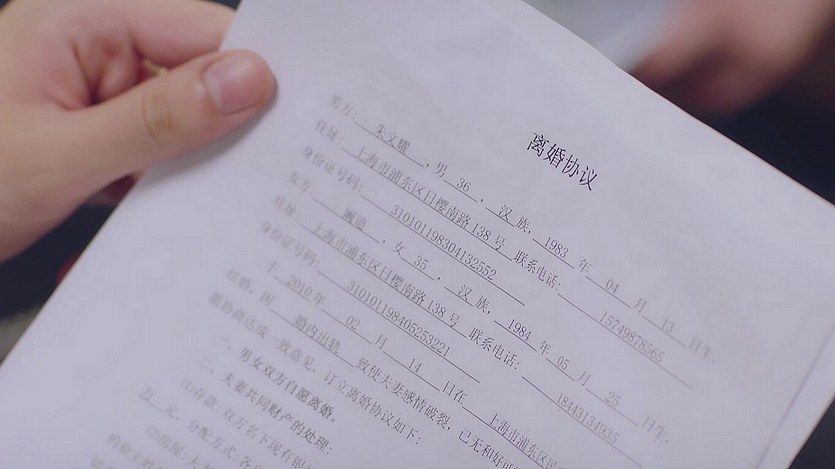 离婚协议
男方: 朱文耀 , 男 36 , 汉 族, 1983 年 04 月 13 日生,
住址: 上海市浦东区日樱南路138号 联系电话: 15749878565
身份证号码: 310101198304132552
女方: , 女 35 , 汉 族, 1984 年 05 月 25 日生,
住址: 上海市浦东区日樱南路138号 联系电话: 18443134935
身份证号码: 310101198405253221
于 2010年 02 月 14 日在 上海市浦东区
结婚, 因 婚内出轨 致使夫妻感情破裂, 已无和好可
能协商达成一致意见, 订立离婚协议如下:
一、男女双方自愿离婚。
二、夫妻共同财产的处理:
(1)存款: 双方名下现有银
元, 分配方式: 各
(2)房屋: 夫
的业主